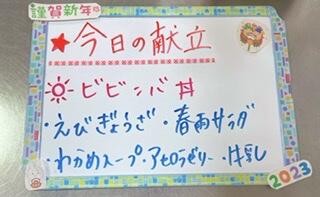 謹賀新年
★今日の献立
ビビンバ丼
・えびぎょうざ・春雨サラダ
・わかめスープ・アセロラゼリー・牛乳
2023